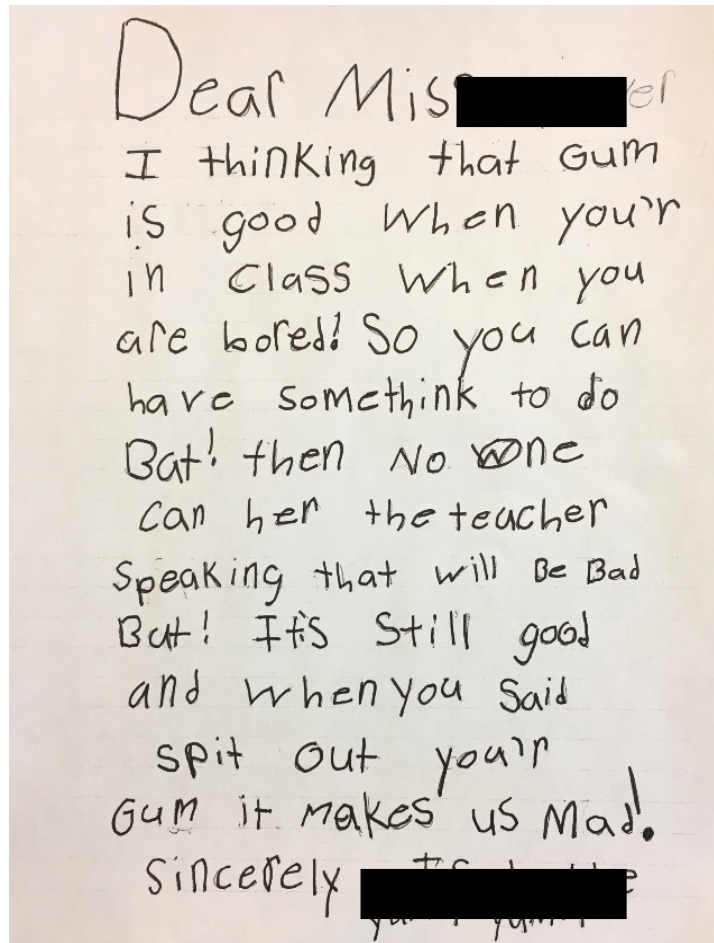 Dear Mis
I thinking that Gum
is good when you'r
in Class when you
are bored! So you can
have somethink to do
Bat! then No one
can her the teacher
Speaking that will Be Bad
But! It's Still good
and when you Said
spit out you'r
Gum it makes us Mad!
Sincerely